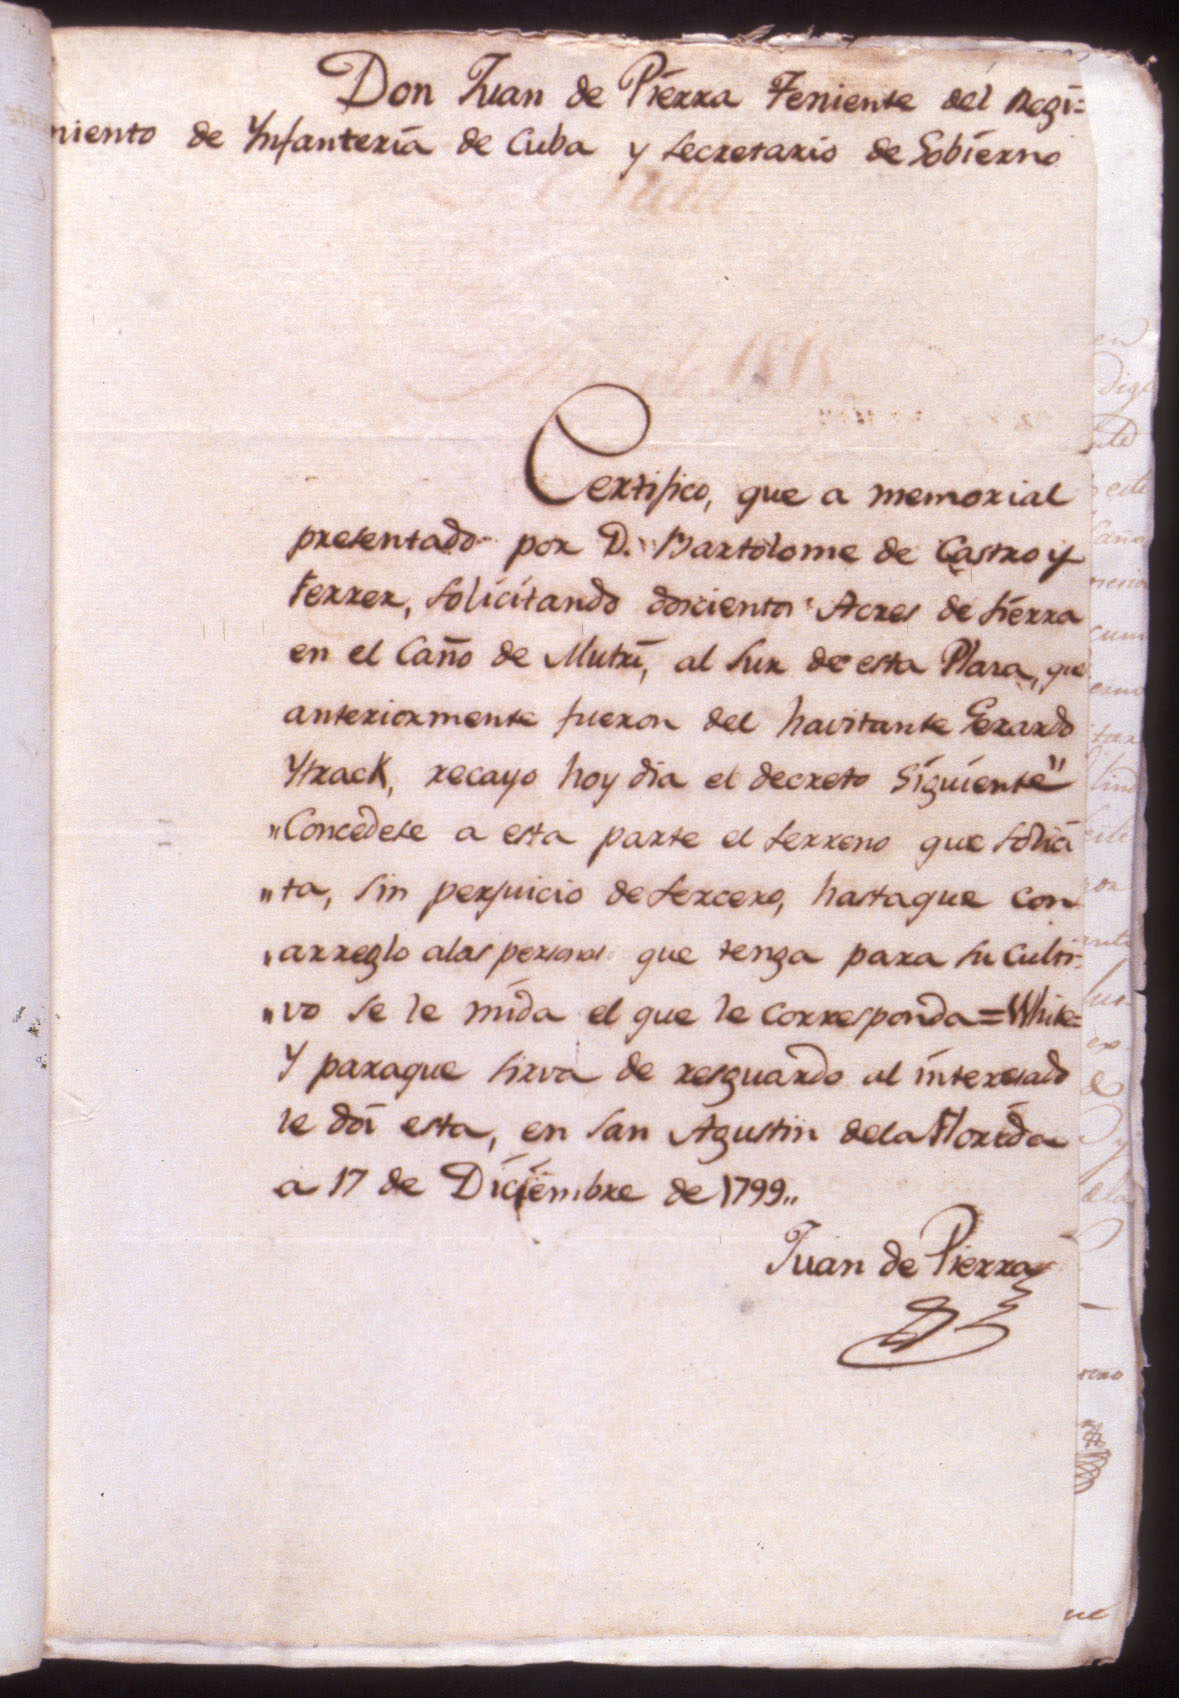 Don Juan de Pierra Teniente del Regi=
miento de Ynfanteria de Cuba y Secretario de Gobierno
Certifico, que a memorial
presentado por D. Bartolome de Castro y
Ferrer, solicitando doscientos Acres de tierra
en el Caño de Mutrí, al Sur de esta Plaza, que
anteriormente fueron del havitante Gerardo
Ytrack, recayo hoy dia el decreto siguiente"
"Concedese a esta parte el terreno que solici
"ta, sin perjuicio de tercero, hastaque con
"arreglo alas personas que tenga para su culti-
"vo se le mida el que le corresponda=White=
Y paraque sirva de resguardo al interesado
le doi esta, en San Agustin dela Florida
a 17 de Diciembre de 1799,,
Juan de Pierra